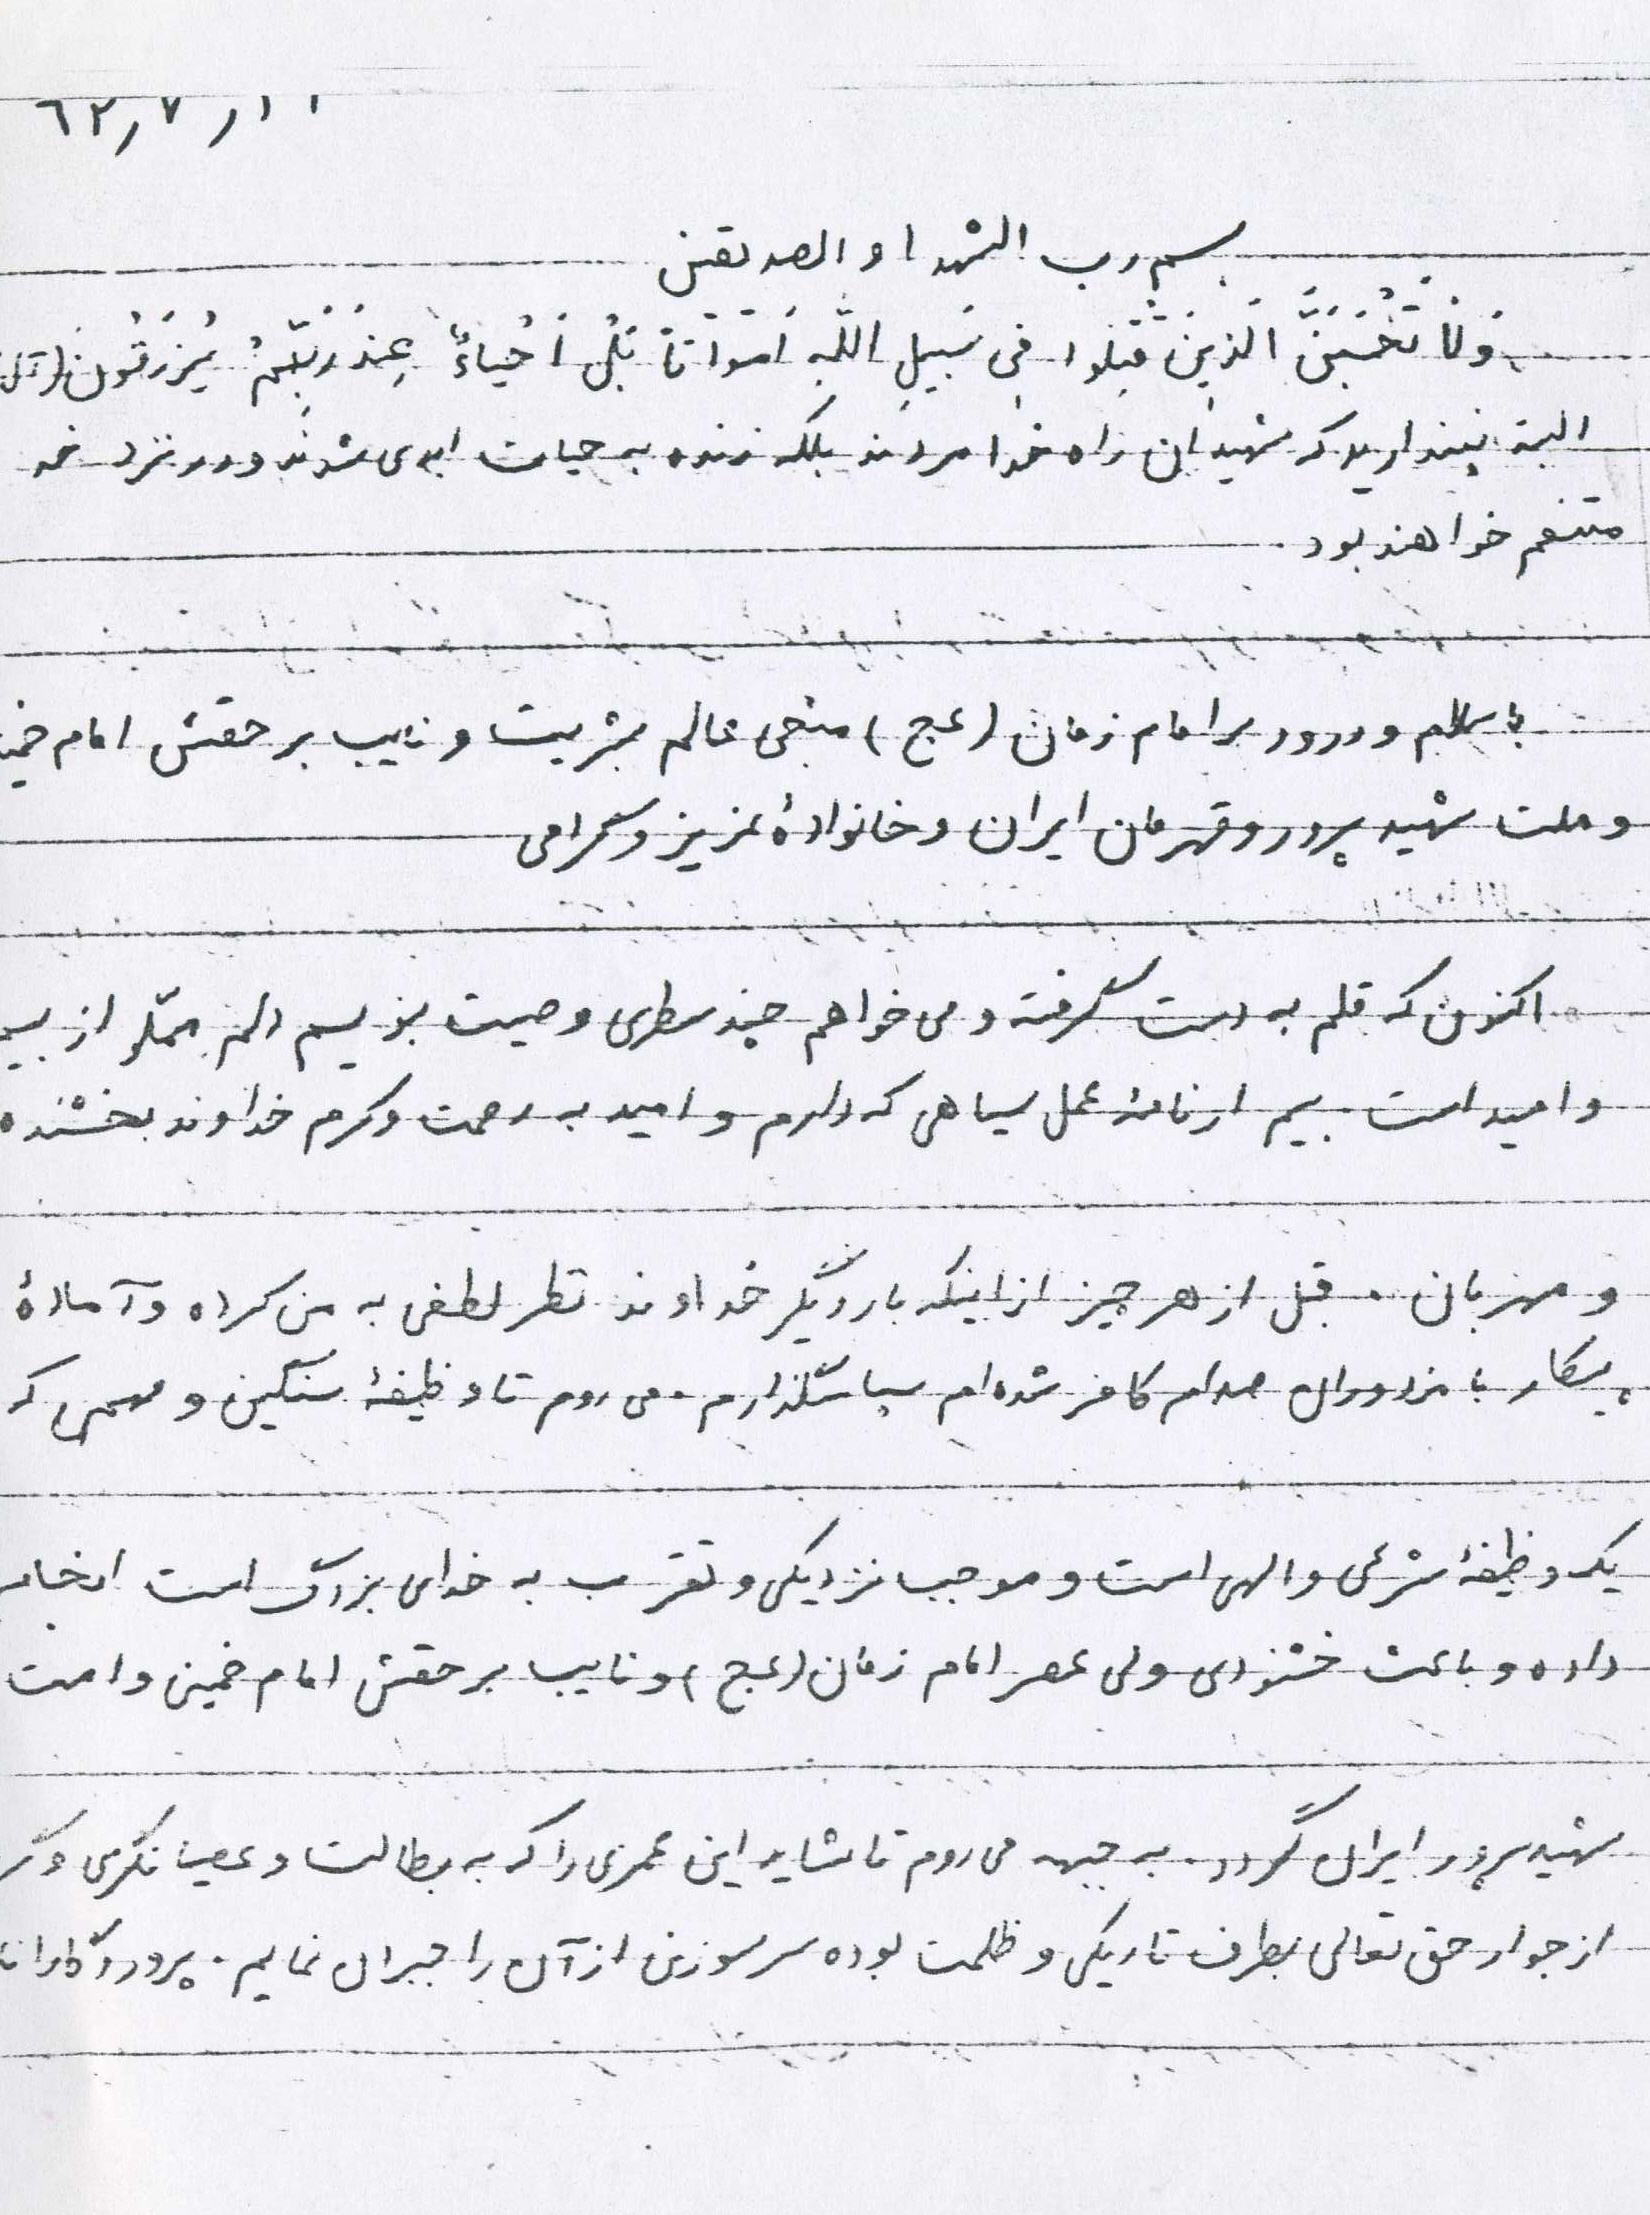 ۶۲٫۷٫۱۱
بسم رب الشهدا و الصدیقین
وَلا تَحْسَبَنَّ الَّذینَ قُتِلوا فی سَبیلِ اللهِ اَمْواتاً بَلْ اَحْیاءٌ عِنْدَ رَبِّهِمْ یُرْزَقُون
البته نپندارید که شهیدان راه خدا مردند بلکه زنده به حیات ابدی شدند و در نزد خد
متنعم خواهند بود.
با سلام و درود بر امام زمان (عج) منجی عالم بشریت و نایب بر حقش امام خمی
و ملت شهید پرور و قهرمان ایران و خانوادهٔ عزیز و گرامی
اکنون که قلم به دست گرفته و می خواهم چند سطری وصیت بنویسم دلم مملو از بیم
و امید است. بیم از نامهٔ عمل سیاهی که دارم و امید به رحمت و کرم خداوند بخشنده
و مهربان. قبل از هر چیز از اینکه بار دیگر خداوند نظر لطفی به من کرده و آمادهٔ
پیکار با مزدوران صدام کافر شده‌ام سپاسگذارم. می روم تا وظیفهٔ سنگین و مهمی که
یک وظیفهٔ شرعی و الهی است و موجب نزدیکی و تقرب به خدای بزرگ است انجام
داده و باعث خشنودی ولی عصر امام زمان (عج) و نایب بر حقش امام خمینی و امت
شهید پرور ایران گردد. به جبهه می روم تا شاید این عمری را که به بطالت و عصیانگری و
از جوار حق تعالی بطرف تاریکی و ظلمت بوده سر سوزنی از آن را جبران نمایم. پروردگارا